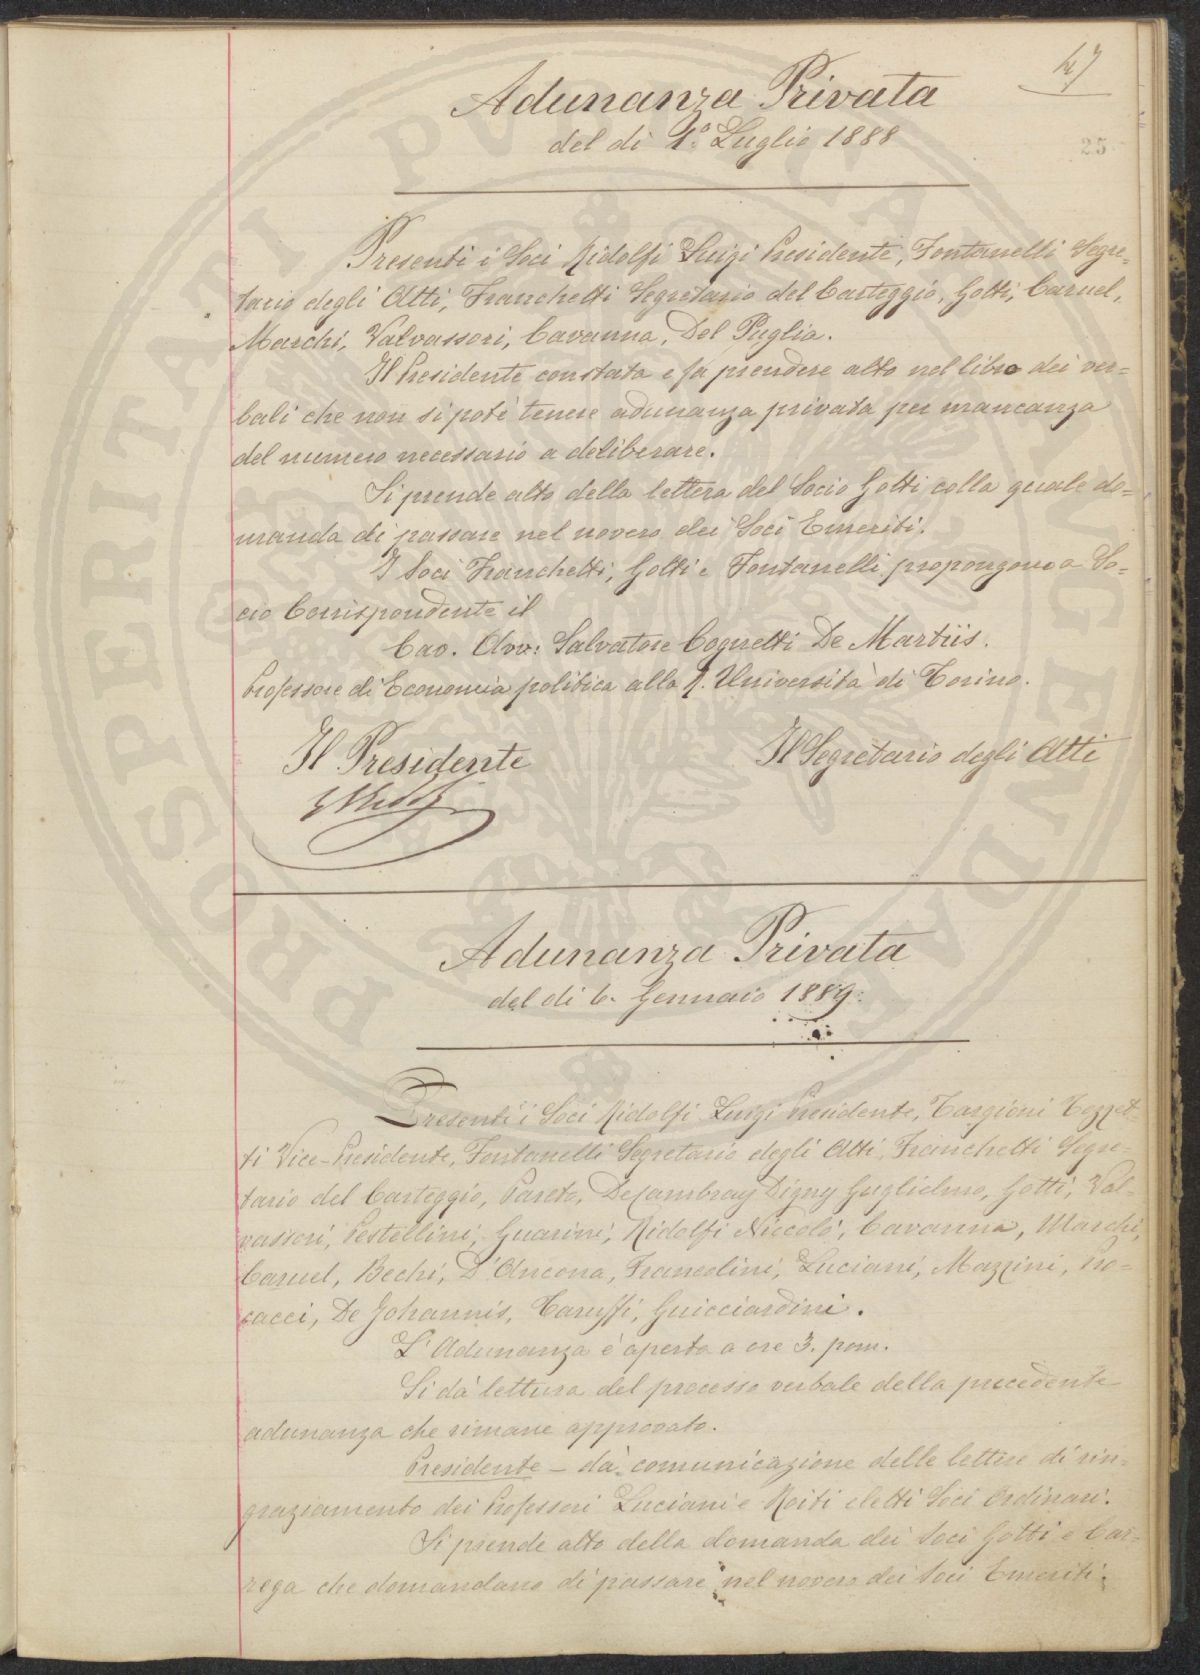 47
25
Adunanza Privata
del di 1.° Luglio 1888
Presenti i Soci Ridolfi Luigi Presidente, Fontanelli Segre-
tario degli Atti, Franchetti Segretario del Carteggio, Gotti, Caruel,
Marchi, Valvassori, Cavanna, Del Puglia.
Il Presidente constata e fa prendere atto nel libro dei ver=
bali che non si potè tenere adunanza privata per mancanza
del numero necessario a deliberare.
Si prende atto della lettera del Socio Gotti colla quale do=
manda di passare nel novero dei Soci Emeriti.
I Soci Franchetti, Gotti e Fontanelli propongono a So-
cio Corrispondente il
Cav. Avv: Salvatore Cognetti De Martiis.
Professore di Economia politica alla R. Università di Torino.
Il Presidente
Il Segretario degli Atti
Adunanza Privata
del di 6. Gennaio 1889.
Presenti i Soci Ridolfi Luigi Presidente, Targioni Tozzet-
ti Vice-Presidente, Fontanelli Segretario degli Atti, Franchetti Segre-
tario del Carteggio, Pareto, DeCambray Digny Guglielmo, Gotti, Val-
vassori, Pestellini, Guarini, Ridolfi Niccolò, Cavanna, Marchi,
Caruel, Bechi, D'Ancona, Francolini, Luciani, Mazzini, Pro-
cacci, De Johannis, Taruffi, Guicciardini.
L'Adunanza è aperta a ore 3. pom.
Si dà lettura del processo verbale della precedente
adunanza che rimane approvato.
Presidente - dà comunicazione delle lettere di rin-
graziamento dei Professori Luciani e Roiti eletti Soci Ordinari.
Si prende atto della domanda dei Soci Gotti e Car-
rega che domandano di passare nel novero dei Soci Emeriti.
PROSPERITATI PVBLICAE AVGENDAE